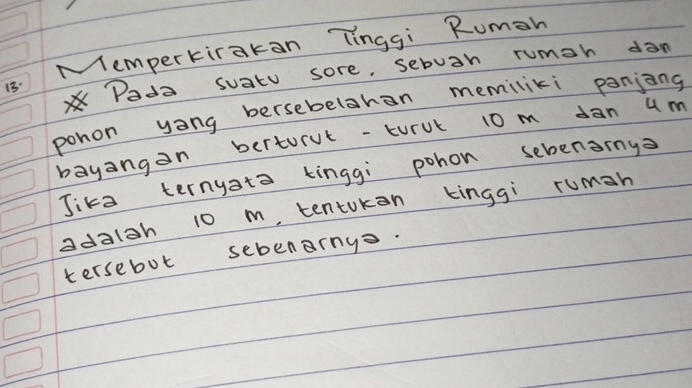 Memperkirakan Tinggi Rumah
13. Pada suatu sore, sebuah rumah dan
pohon yang bersebelahan memiliki panjang
bayangan berturut-turut 10 m dan 4 m
Jika ternyata tinggi pohon sebenarnya
adalah 10 m, tentukan tinggi rumah
tersebut sebenarnya.